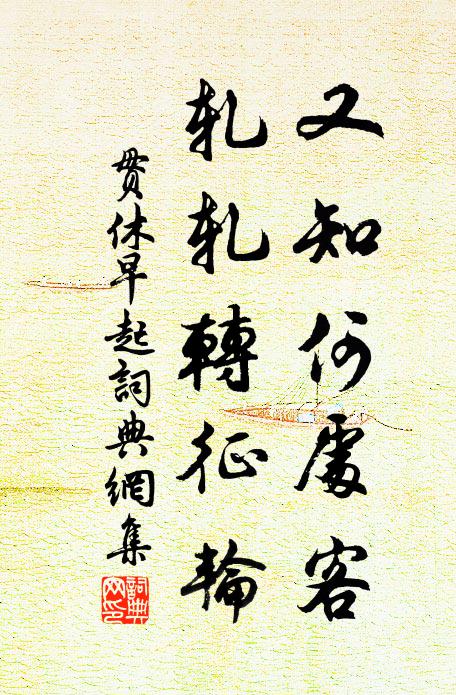 又知何處客
軋軋轉征輪
貫休早起詞典網集
詞典網印